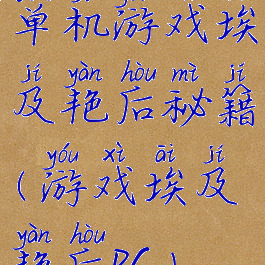 单机游戏埃
jí yàn hòu mì jí
及艳后秘籍
yóu xì āi jí
(游戏埃及
yàn hòu
艳后PC)